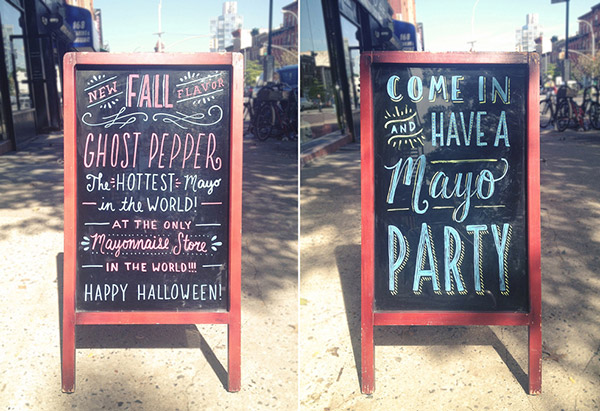 NEW FALL FLAVOR
GHOST PEPPER
The HOTTEST Mayo
in the WORLD!
AT THE ONLY
Mayonnaise Store
IN THE WORLD!!!
HAPPY HALLOWEEN!
COME IN
AND HAVE A
Mayo
PARTY